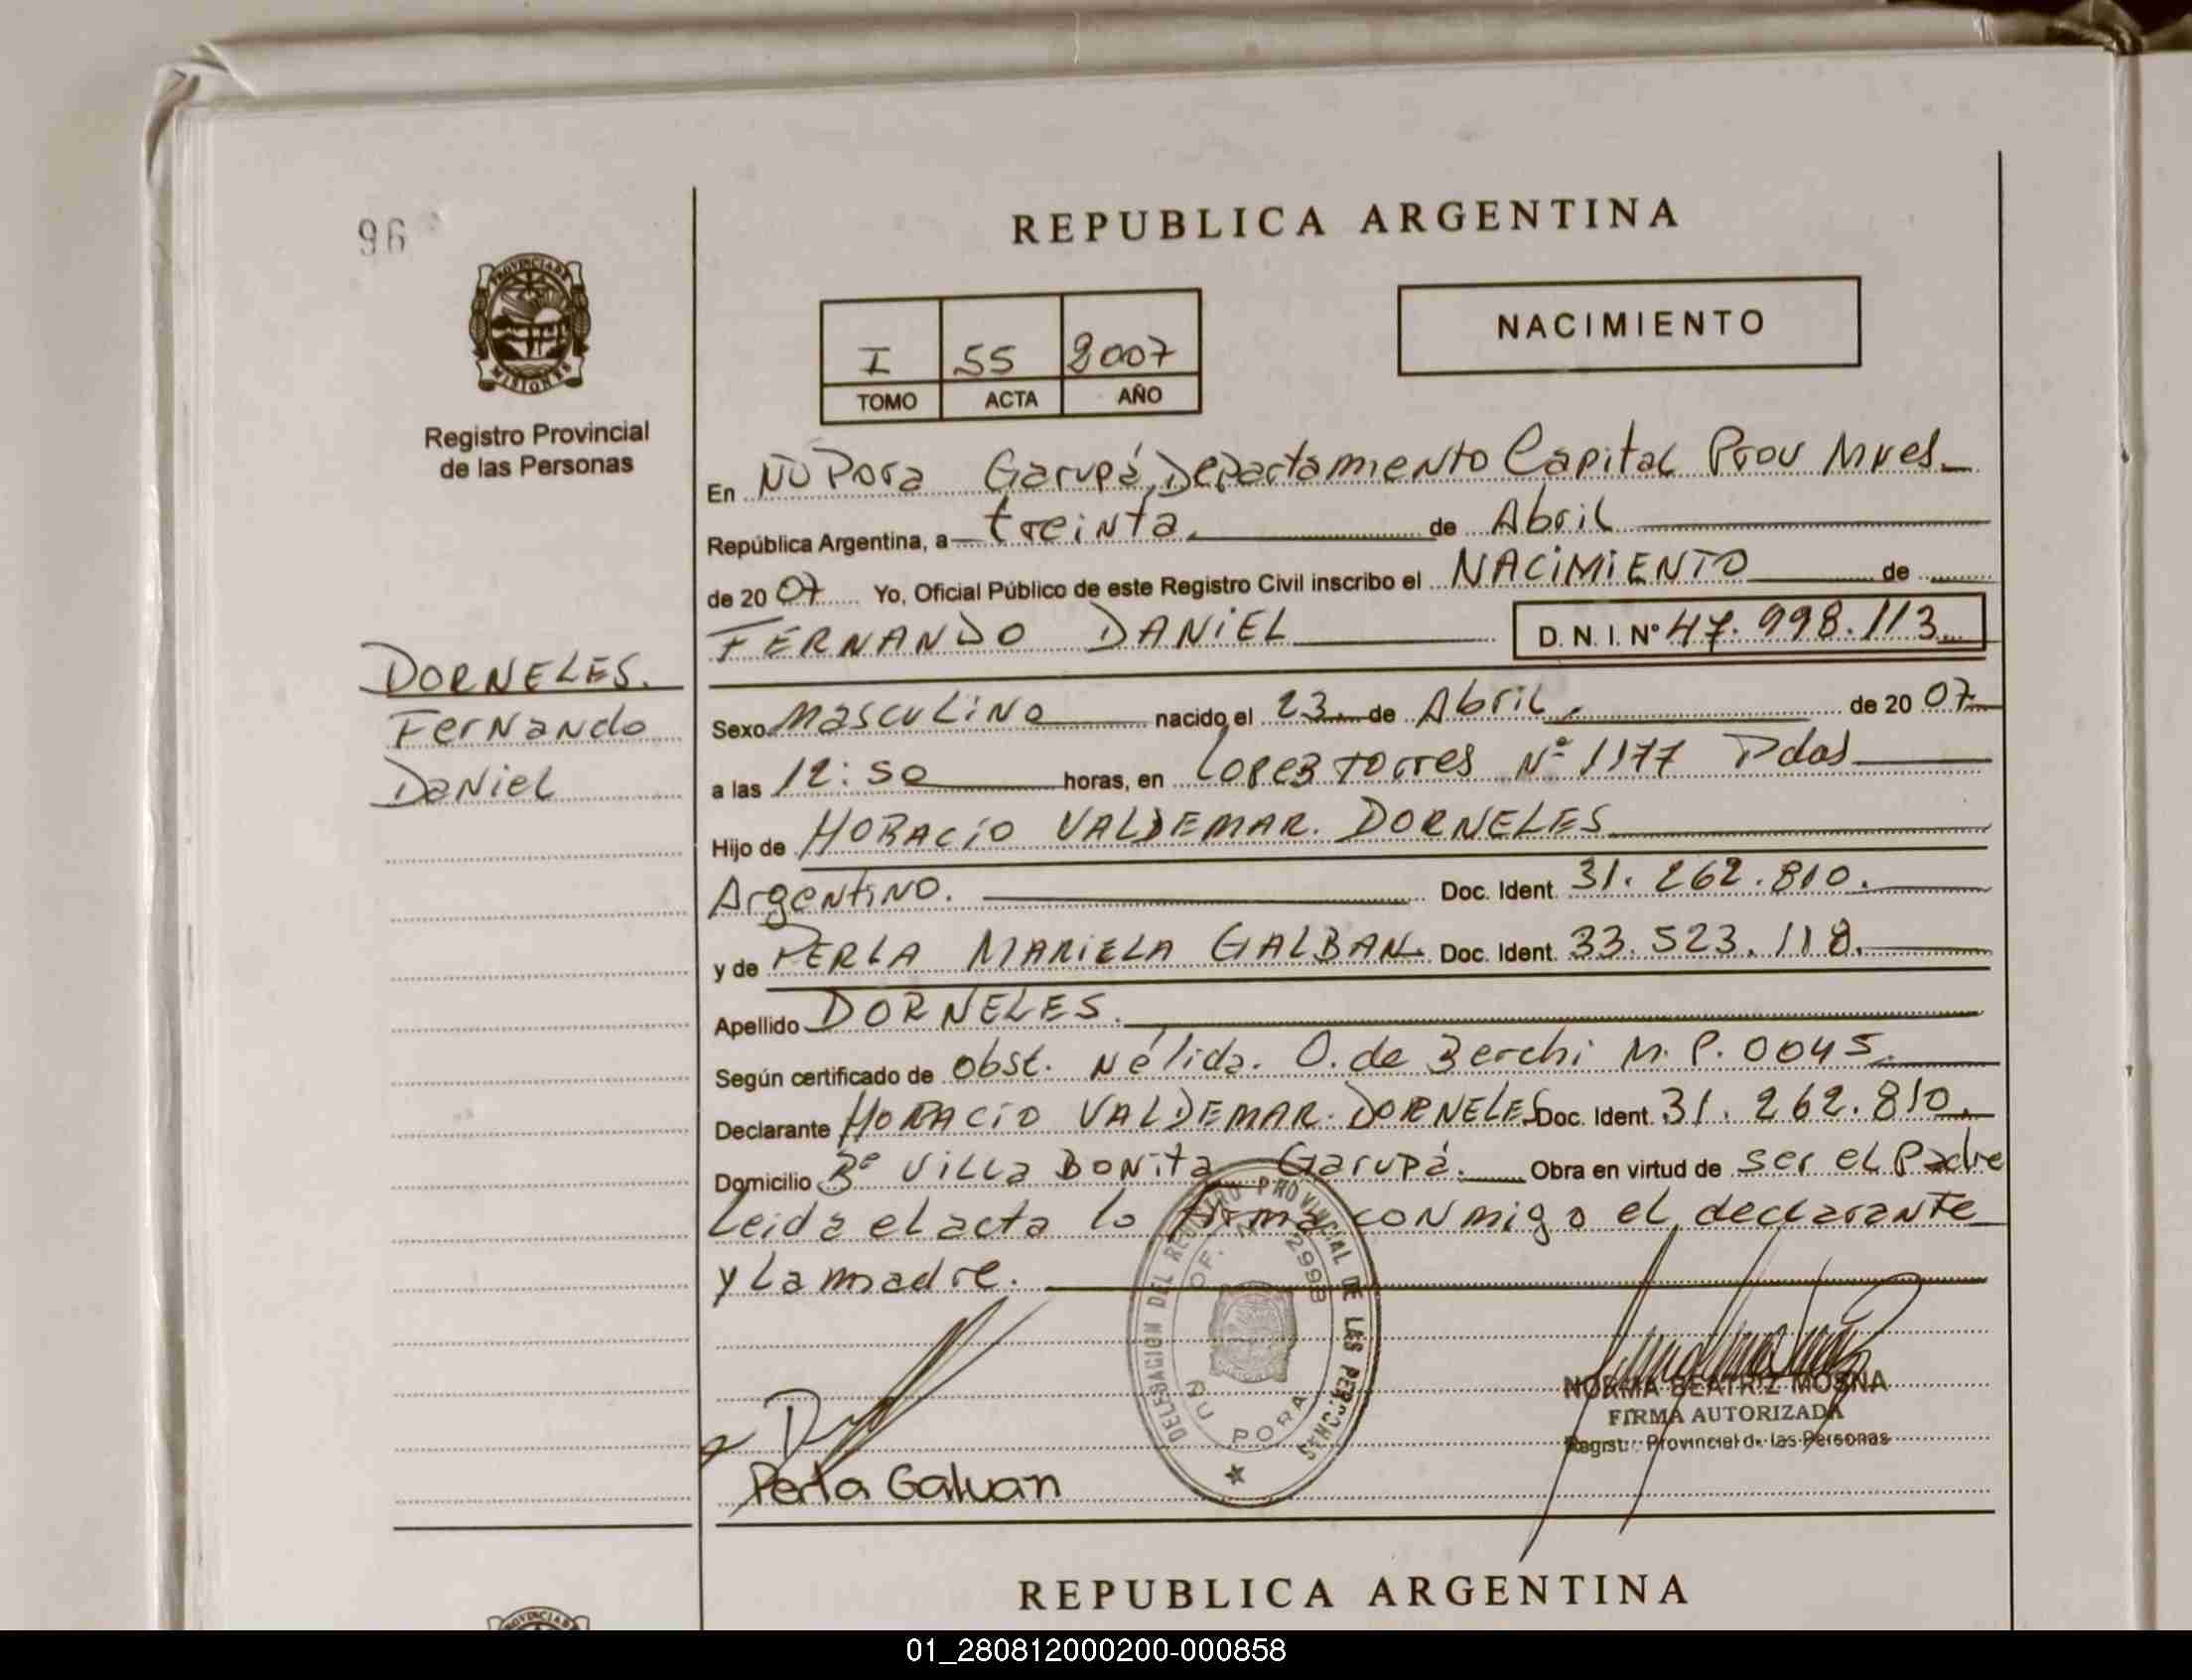 96
PROVINCIA DE
MISIONES
Registro Provincial
de las Personas
DORNELES.
Fernando
Daniel
REPUBLICA ARGENTINA
I 55 2007
TOMO ACTA AÑO
NACIMIENTO
En Ñu Pora Garupá, Departamiento Capital Prov Mnes
República Argentina, a treinta de Abril
de 2007 Yo, Oficial Público de este Registro Civil inscribo el NACIMIENTO de
FERNANDO DANIEL D. N. I. Nº 47.998.113
Sexo masculino nacido el 23 de Abril de 2007
a las 12:50 horas, en Lopez torres Nº 1177 Pdas
Hijo de HORACIO VALDEMAR. DORNELES
Argentino. Doc. Ident. 31.262.810.
y de PERLA MARIELA GALBAN. Doc. Ident. 33.523.118.
Apellido DORNELES.
Según certificado de obst. Nélida. O. de Berchi M.P. 0045.
Declarante HORACIO VALDEMAR. DORNELES Doc. Ident. 31.262.810.
Domicilio Bº Villa Bonita Garupá. Obra en virtud de ser el Padre
Leida el acta lo firma conmigo el declarante
y la madre.
DELEGACION DEL REGISTRO PROVINCIAL DE LAS PERSONAS
OF. N 2998
ÑU PORA
NORMA BEATRIZ MOSNA
FIRMA AUTORIZADA
Registro Provincial de las Personas
Perla Galvan
REPUBLICA ARGENTINA
PROVINCIA
01_280812000200-000858